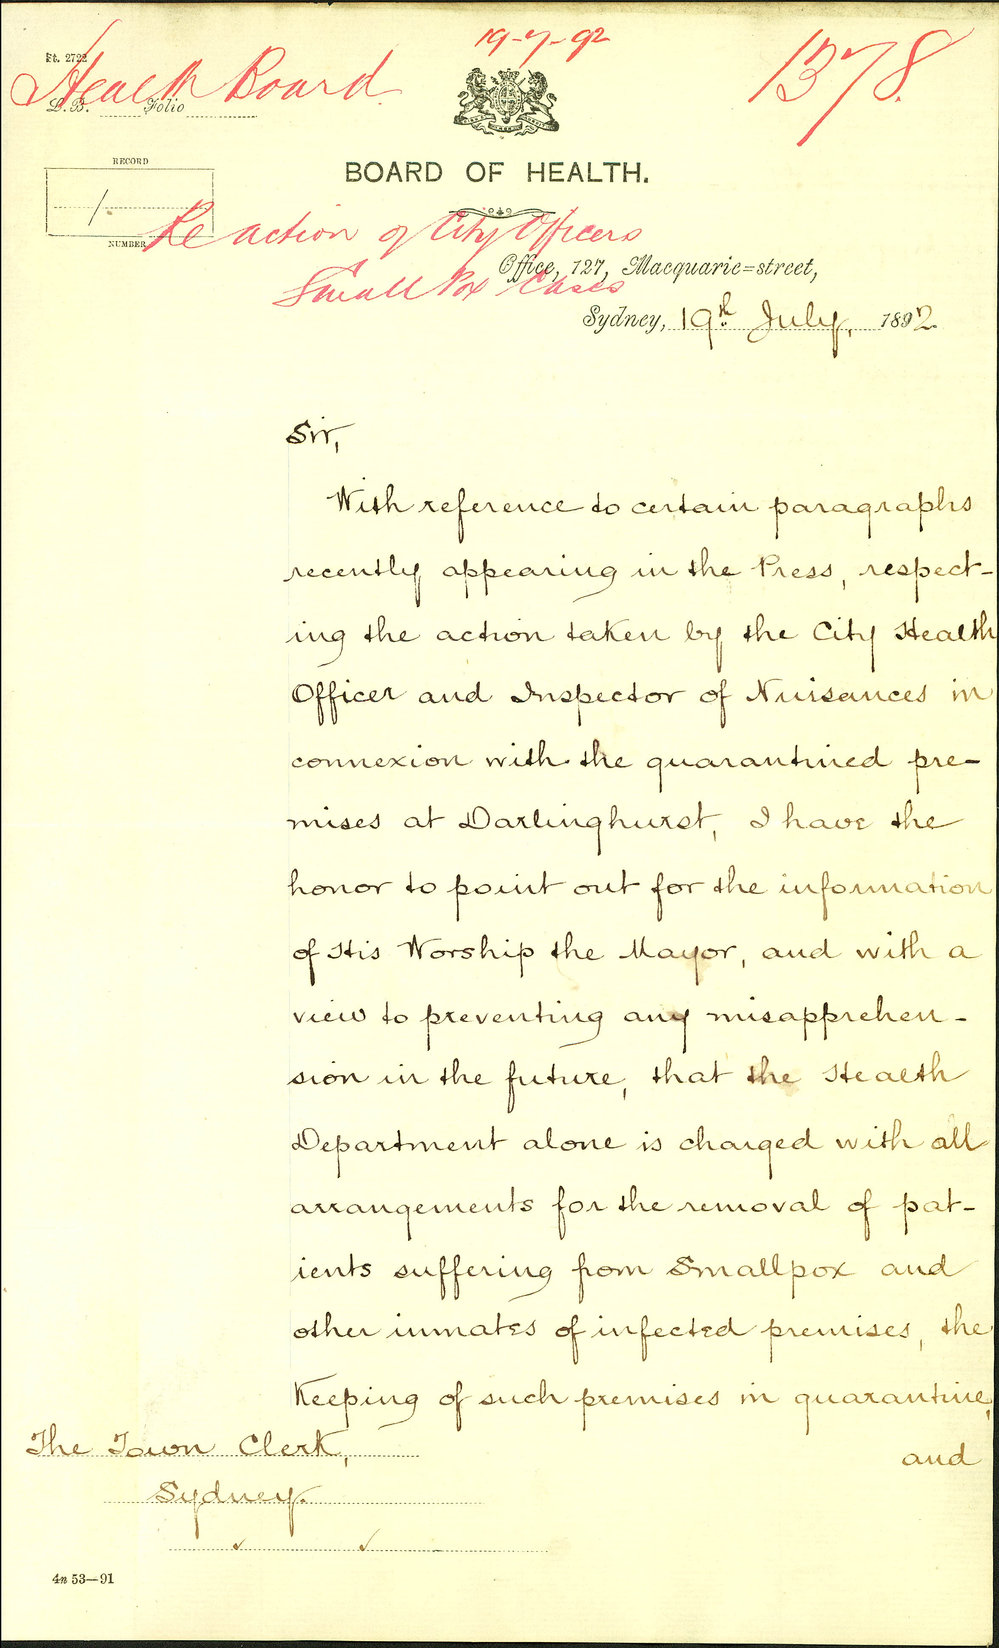 19-7-92
1378.
St. 2722
Health Board
L.B. Folio
BOARD OF HEALTH.
RECORD
1.
NUMBER
Re action of City Officers
Small Pox Cases
Office, 127, Macquarie=street,
Sydney, 19th July, 1892.
Sir,
With reference to certain paragraphs
recently appearing in the Press, respect-
ing the action taken by the City Health
Officer and Inspector of Nuisances in
connexion with the quarantined pre-
mises at Darlinghurst, I have the
honor to point out for the information
of His Worship the Mayor, and with a
view to preventing any misapprehen-
sion in the future, that the Health
Department alone is charged with all
arrangements for the removal of pat-
ients suffering from Smallpox and
other inmates of infected premises, the
Keeping of such premises in quarantine,
and
The Town Clerk,
Sydney.
4n 53—91